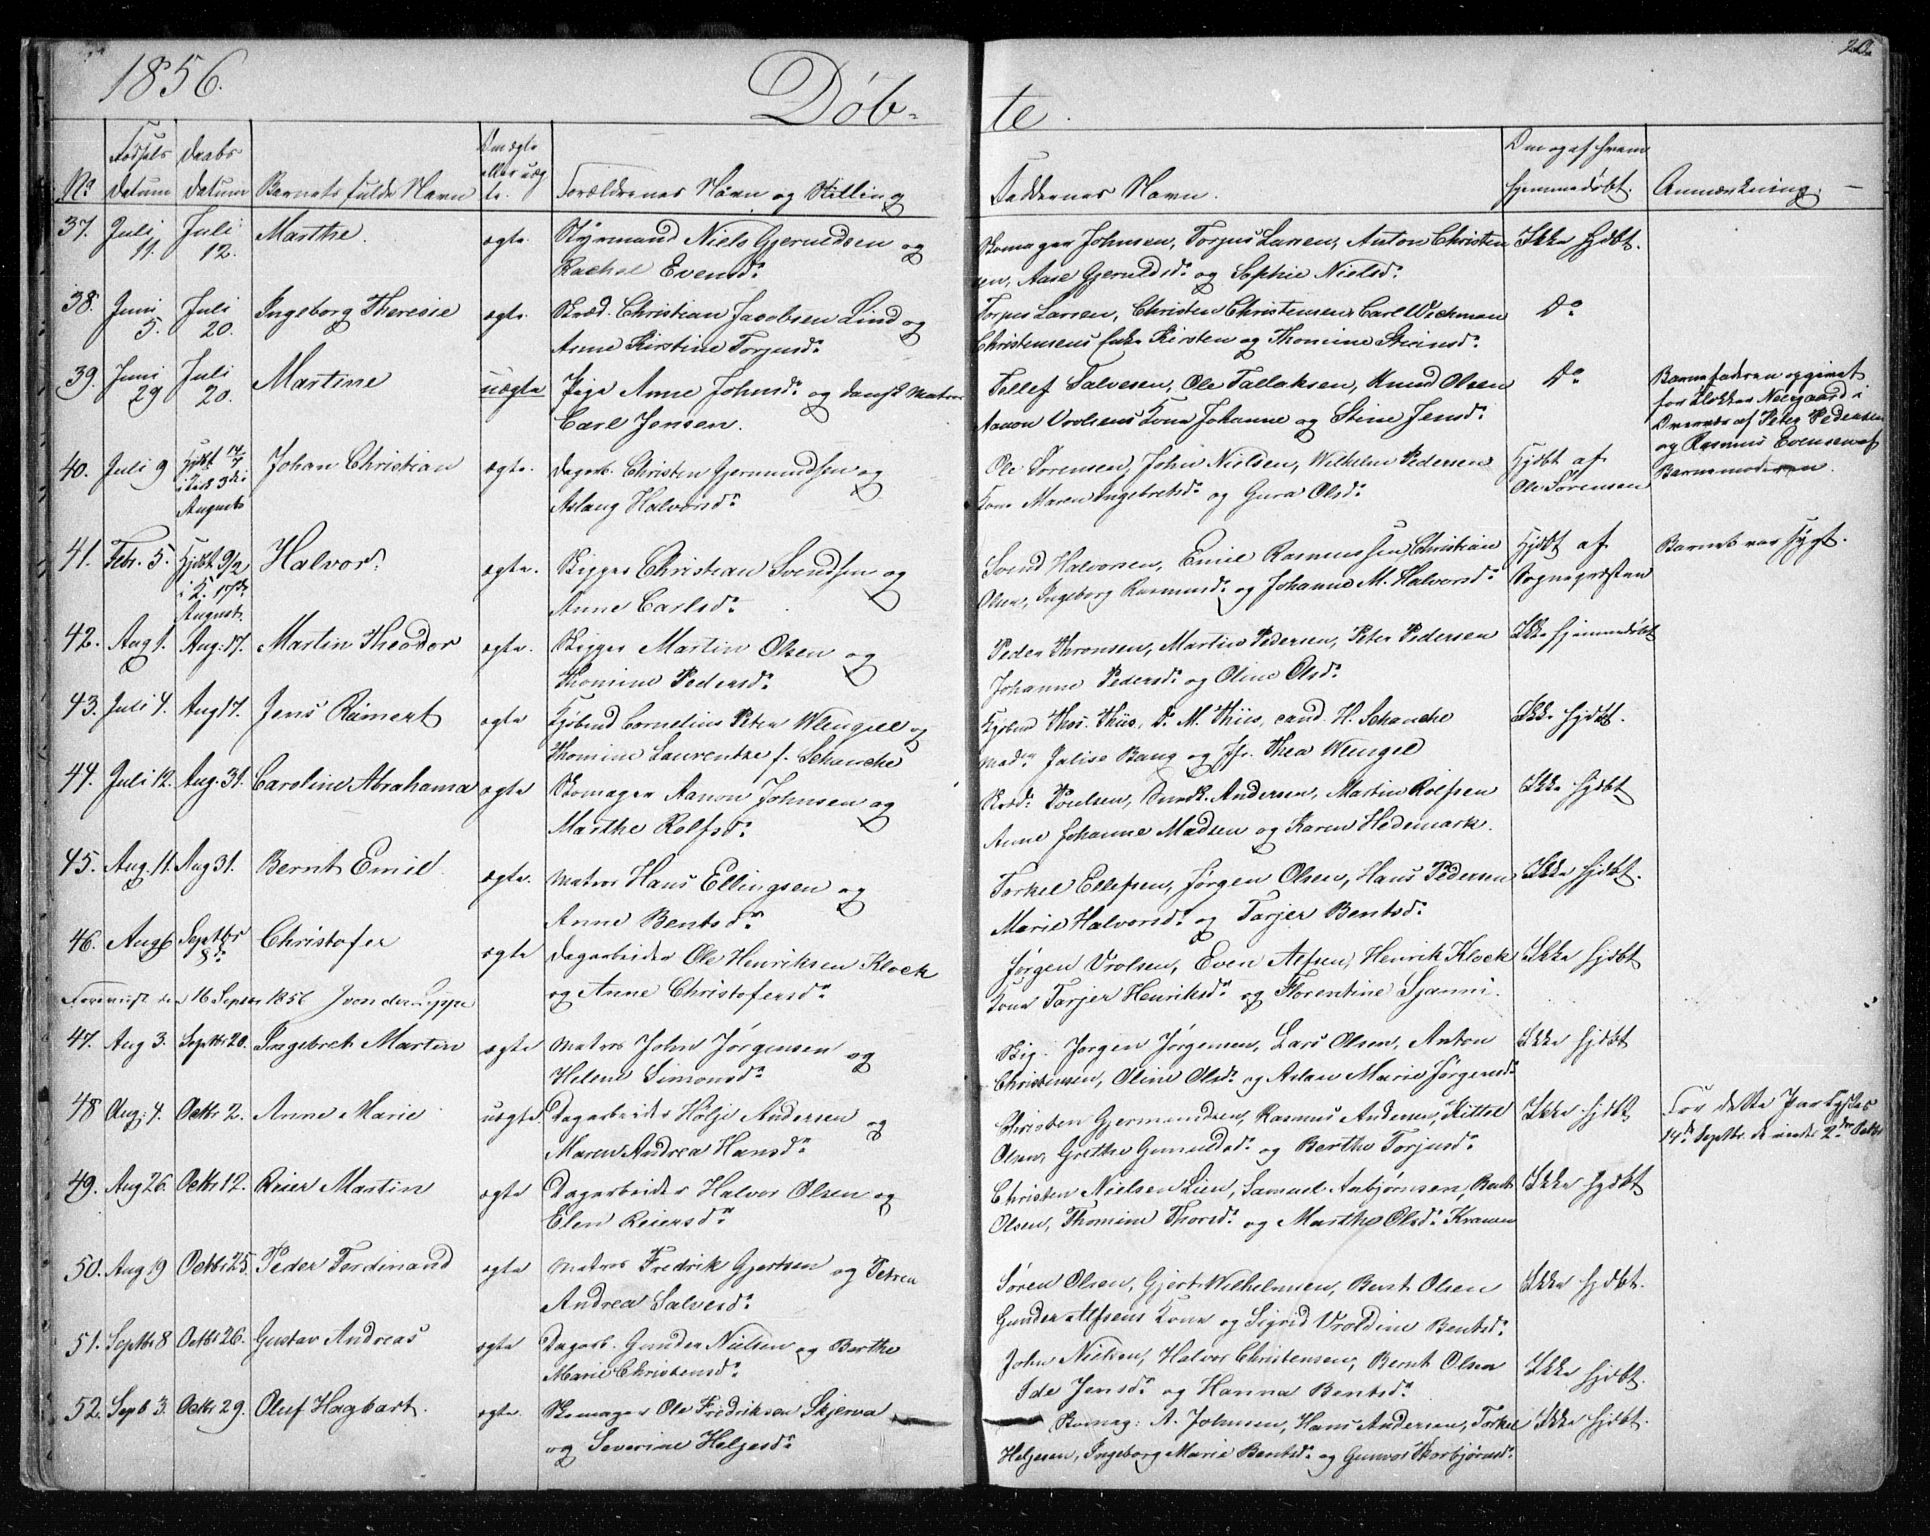 1856.
Døb-
te.
20.
No
Fødsels datum
Daabs datum
Barnets fulde Navn
Om ægte eller uægte.
Forældrenes Navn og Stilling
Faddernes Navn.
Om og af hvem hjemmedøbt.
Anmærkning.
37. Juli 11. Juli 12. Marthe. ægte. Styrmand Niels Gjeruldsen og
Rachel Evensd.
Skomager Johnsen, Torjus Larsen, Anton Christen
sen, Aase Gjeruldsd. og Sophie Nielsd.
Ikke hjdbt.
38. Juni 5. Juli 20. Ingeborg Theresie ægte. Skræd. Christian Jacobsen Lind og
Anne Kirstine Torjusd.
Torjus Larsen, Christen Christensen, Carl Wichman
Christensens Enke Kirsten og Thomine
Do
39. Juni 29 Juli 20. Martine uægte Pige Anne Johnsd. og dansk Matros
Carl Jensen.
Tellef Salvesen, Ole Tallaksen, Knud Olsen
Aanon Vrolsens Kone Johanne og Stine Jensd.
Do
Barnefaderen opgivet
for Klokker Neergaard i
Overvær af Peter Pedersen
og Rasmus Evensen af
Barnemoderen.
40. Juli 9 Hjdbt 14/7 i Kirk 3die Augusts Johan Christian ægte. Dagarb. Christen Gjermundsen og
Aslaug Halvorsd.
Ole Sørensen, John Nielsen, Wilhelm Pedersens
Kone Maren Ingebretsd. og Gura Olsd.
Hjdbt af
Ole Sørensen
41. Febr. 5. Hjdbt 9/2 i K. 17de August. Halvor. ægte. Rigger Christian Svendsen og
Anne Carlsd.
Svend Halvorsen, Emil Rasmussen, Christian
Olsen, Ingeborg Rasmusd. og Johanne M. Halvorsd.
Hjdbt af
Sognepræsten
Barnet var sygt.
42. Aug 1. Aug: 17. Martin Theodor ægte. Rigger Martin Olsen og
Thomine Pedersd.
Peder Thronsen, Martin Pedersen, Peter Pedersen
Johanne Pedersd. og Oline Olsd.
Ikke hjemmedøbt
43. Juli 4. Aug 17. Jens Reimert ægte Kjøbmd Cornelius Peter Wengel og
Thomine Laurentze f. Schanche
Kjøbmd Thos. Thiis, Do M. Thiis, cand. H. Schanche
Mad. Jalise Bang og Jfr. Thea Wengel
Ikke hjdbt.
44. Juli 12. Aug. 31. Caroline Abrahama ægte Skomager Aanon Johnsen og
Marthe Rolfsd.
Skrd. Poulsen, Andersen, Martin Rolfsen
Anne Johanne Madsen og Karen Hedemark.
Ikke hjdbt
45. Aug. 11. Aug 31. Bernt Emil. ægte. Matros Hans Ellingsen og
Anne Bentsd.
Torkel Ellefsen, Jørgen Olsen, Hans Pedersen
Marie Halvorsd. og Tarjer Bentsd.
Ikke hjdbt.
46. Aug 6 Septbr 8d. Christofer ægte Dagarbeider Ole Henriksen Klock
og Anne Christofersd.
Jørgen Vrolsen, Even Alfsen, Henrik Klock
Kone Tarjer Henriksd. og Florentine Sjanni.
Ikke hjdbt
Foreviist den 16 Septbr 1856 J von der Lippe
47. Aug 3. Septbr 20. Ingebret Martin ægte Matros John Jørgensen og
Helene Simonsd.
Rig. Jørgen Jørgensen, Lars Olsen, Anton
Christensen, Oline Olsd. og Aslau Marie Jørgensd.
Ikke hjdbt
48 Aug: 4. Octbr 2. Anne Marie uægte Dagarbeider Holje Andersen og
Maren Andrea Hansd.
Christen Gjermundsen, Rasmus Andersen, Kittel
Olsen, Grethe Gunnulfsd. og Berthe Torjusd.
Ikke hjdbt
For dette Par lystes
14de Septbr. de viedes 2den Octbr
49. Aug 26. Octbr 12. Reier Martin ægte Dagarbeider Halvor Olsen og
Elen Reiersd.
Christen Nielsen Lien, Samuel Asbjørnsen, Bent
Olsen, Thomine Thorsd. og Marthe Olsd. Kranen
Ikke hjdbt
50. Aug 19 Octbr 25. Peder Ferdinand ægte Matros Fredrik Gjertsen og Petrea
Andrea Salvesd.
Søren Olsen, Gjert Wilhelmsen, Bent Olsen
Gunder Alfsens Kone og Sigrid Vroldine Bentsd.
Ikke hjdbt.
51. Septbr 8 Octbr 26. Gustav Andreas ægte Dagarb. Gunder Nielsen og Berthe
Marie Christensd.
John Nielsen, Halvor Christensen, Bernt Olsen
Ide Jensd. og Hanna Bentsd.
Ikke hjdbt.
52. Septb 3. Octbr 29. Oluf Hagbart. ægte. Skomager Ole Fredriksen Skjerva
og Severine Heljesd.
Skomag: A. Johnsen, Hans Andersen, Torkel
Heljesen, Ingeborg Marie Bentsd. og Gunvor Thorbjørnsd.
Ikke hjdbt.